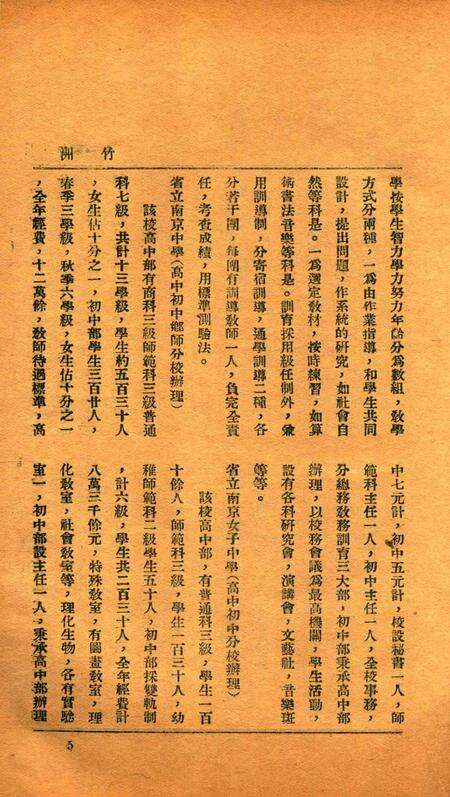 竹洲
學按學生智力學力努力年齡分爲數組，敎學
方式分兩種，一爲由作業指導，和學生共同
設計，提出問題，作系統的硏究，如社會自
然等科是。一爲選定敎材，按時練習，如算
術書法音樂等科是。訓育採用級任制外，兼
用訓導制，分寄宿訓導，通學訓導二種，各
分若干團，每團有訓導敎師一人，負完全責
任，考查成績，用標準測驗法。
省立南京中學（高中初中鄕師分校辦理）
該校高中部有商科三級師範科三級普通
科七級，共計十三學級，學生約五百三十人
，女生佔十分之一，初中部學生三百廿人，
春季三學級，秋季六學級，女生佔十分之一
，全年經費，十二萬餘，敎師待遇標準，高
中七元計，初中五元計，校設秘書一人，師
範科主任一人，初中主任一人，全校事務，
分總務敎務訓育三大部，初中部秉承高中部
辦理，以校務會議爲最高機關，學生活動，
設有各科硏究會，演講會，文藝社，音樂班
等等。
省立南京女子中學（高中初中分校辦理）
該校高中部，有普通科三級，學生一百
十餘人，師範科三級，學生一百三十人，幼
稚師範科二級學生五十人，初中部採雙軌制
，計六級，學生共二百三十人，全年經費計
八萬三千餘元，特殊敎室，有圖畫敎室，理
化敎室，社會敎室等，理化生物，各有實驗
室一，初中部設主任一人，秉承高中部辦理
5